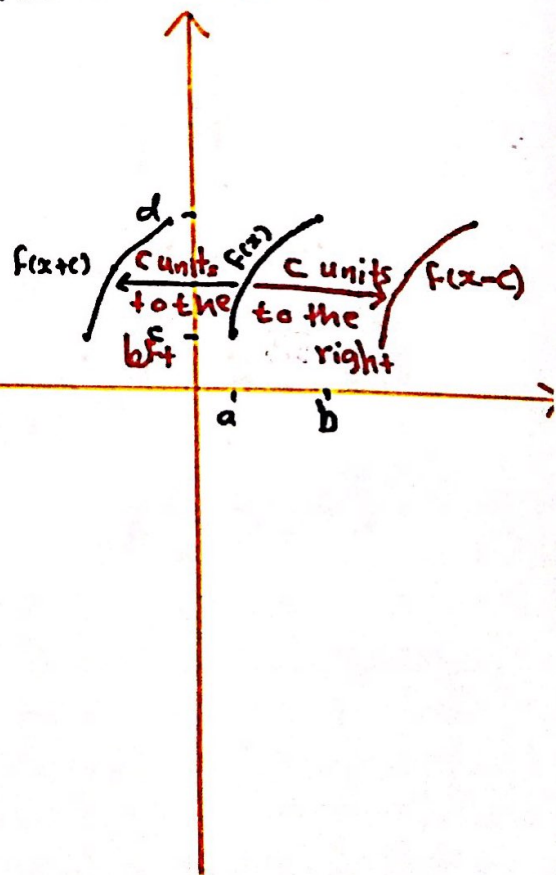 d
f(x+c)
c units
to the
left
f(x)
c units
to the
right
f(x-c)
c
a
b